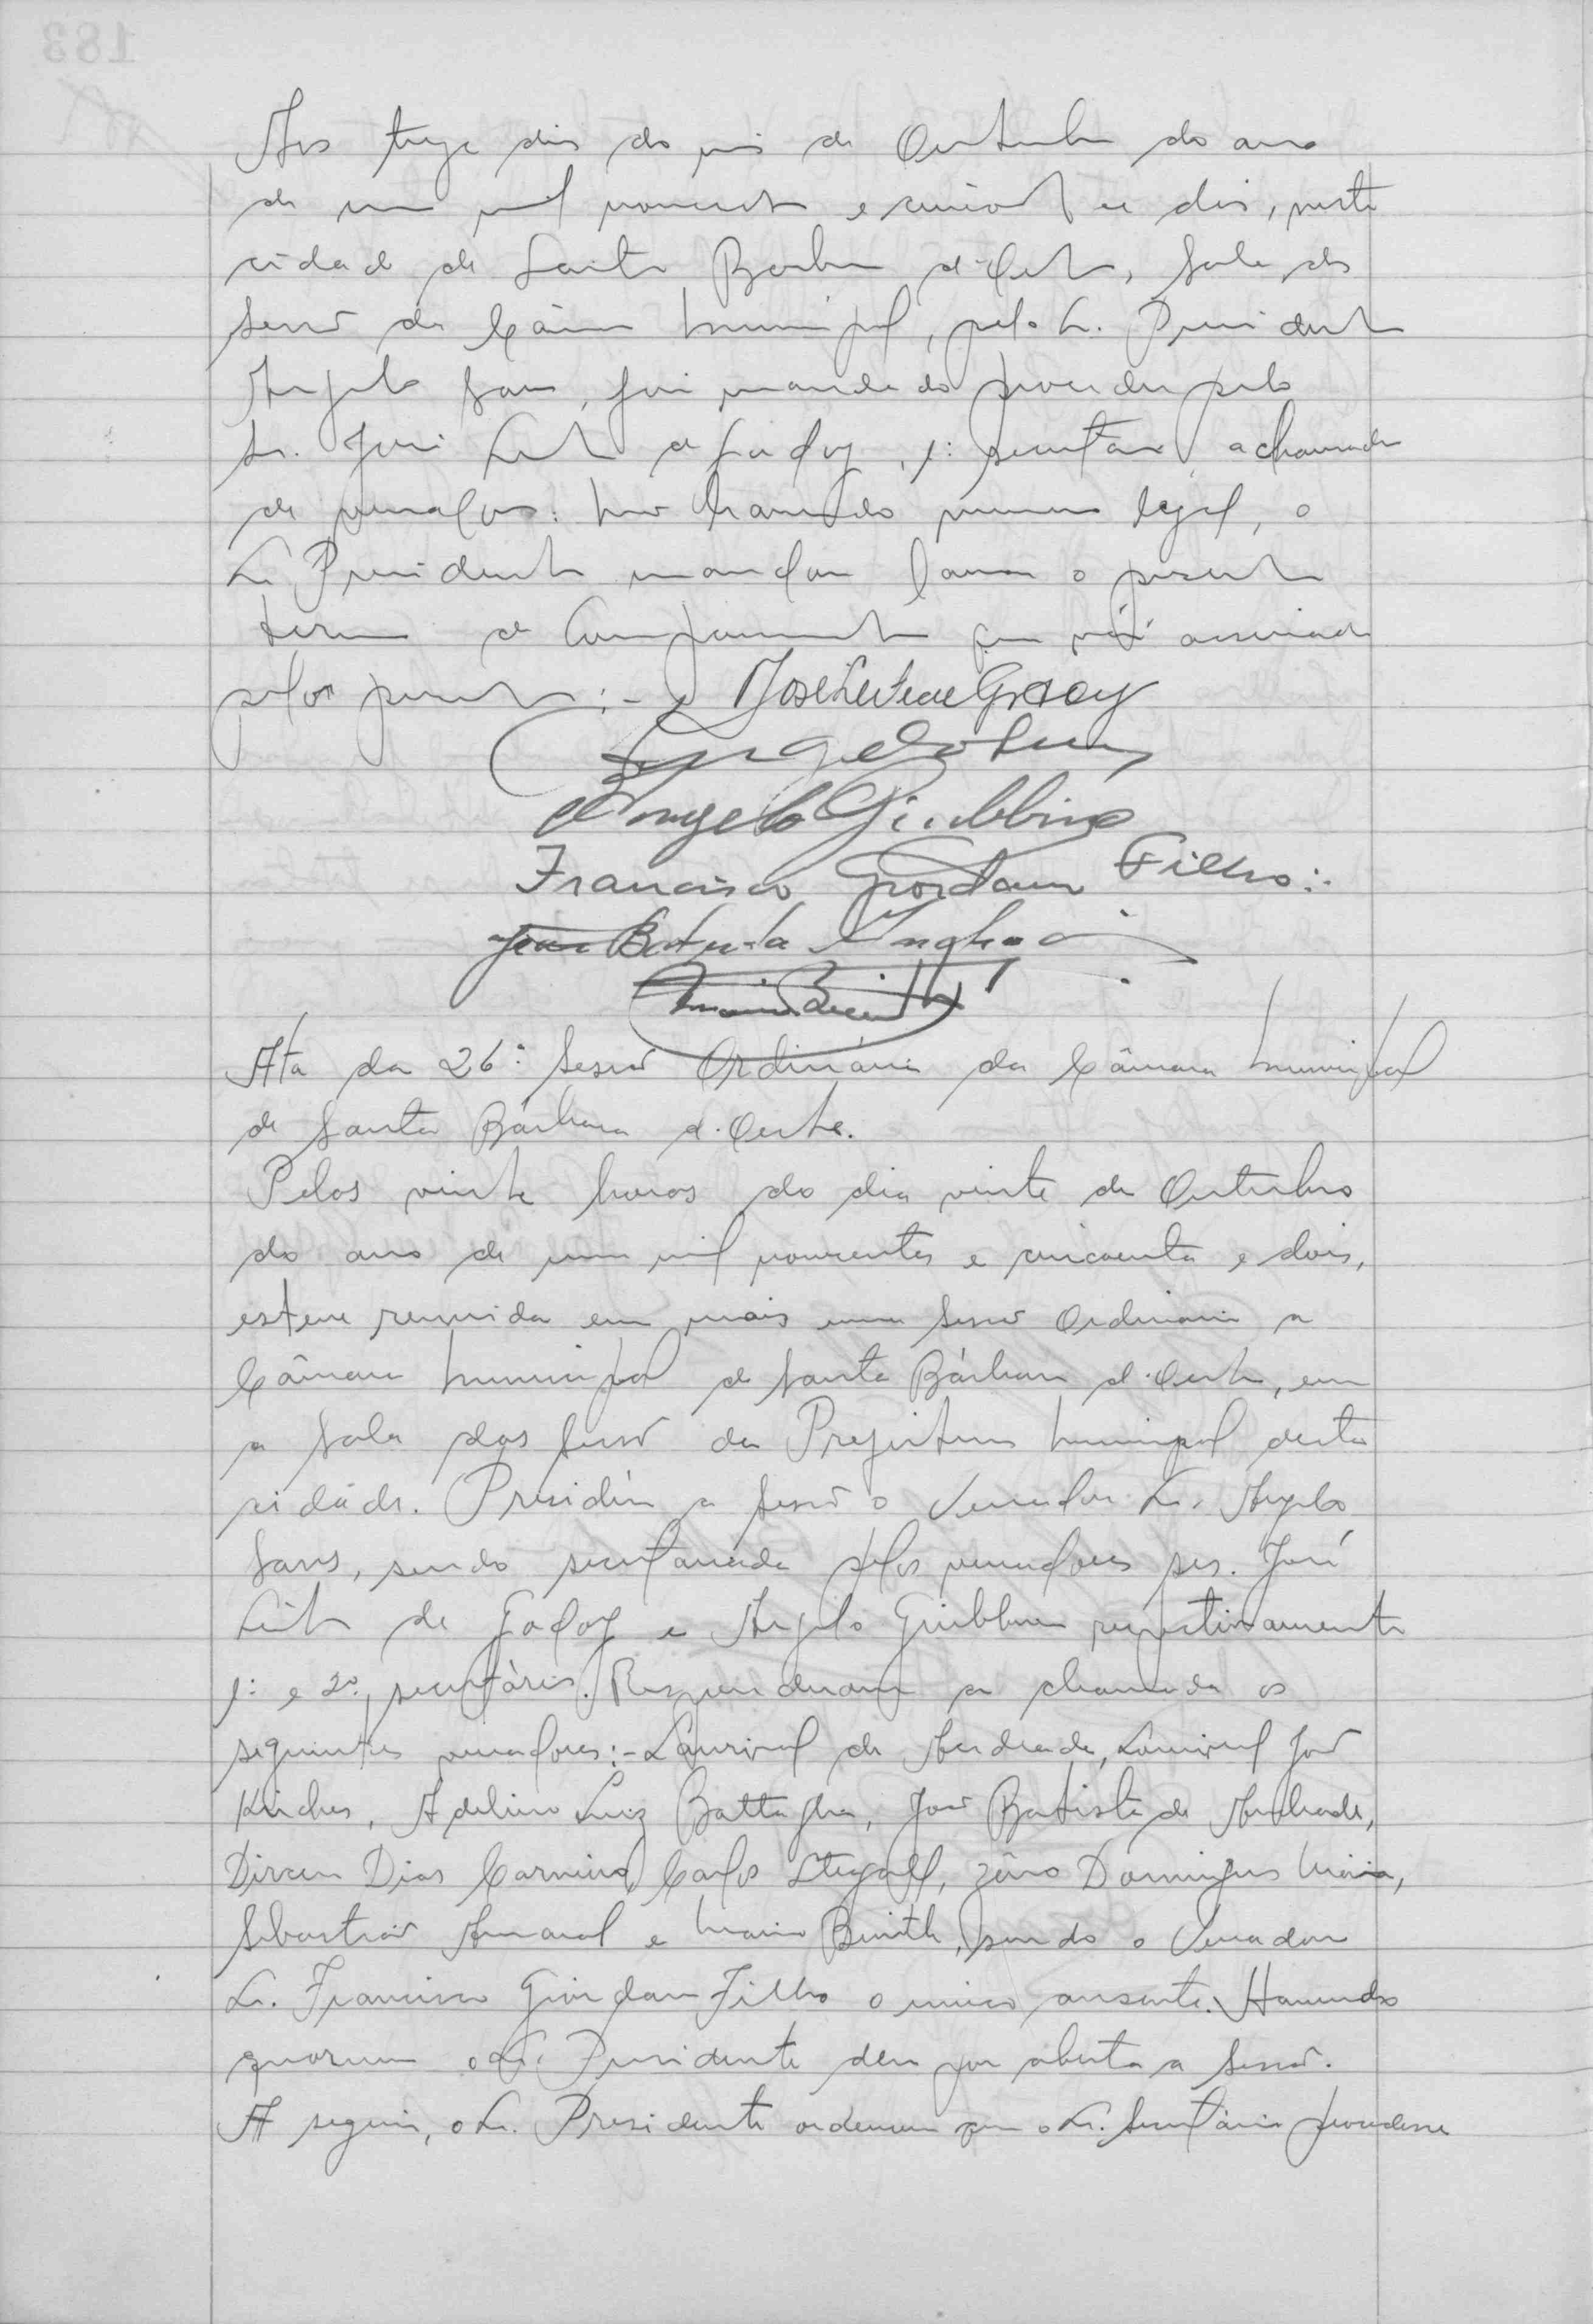 Aos treze dias do mês de Outubro do ano
de um mil novecentos e cincoenta e dois, nesta
cidade de Santa Barbara d'Oeste, sala das
sessões da Câmara Municipal, pelo Sr. Presidente
Angelo Sans, foi mandado proceder pelo
Sr. José Leite de Godoy, 1º secretario a chamada
de vereadores: Não havendo numero legal, o
Sr. Presidente mandou lavrar o presente
termo de Comparecimento que vai assinado
pelos presentes:-
José Leite de Godoy
Angelo Sans
Angelo Giubbina
Francisco Giordano Filho
João Batista
Ata da 26ª Sessão Ordinária da Câmara Municipal
de Santa Bárbara d'Oeste.
Pelas vinte horas do dia vinte de Outubro
do ano de um mil novecentos e cincoenta e dois,
esteve reunida em mais uma Sessão Ordinaria a
Câmara Municipal de Santa Bárbara d'Oeste, em
a sala das sessões da Prefeitura Municipal desta
cidade. Presidiu a sessão o Vereador Sr. Angelo
Sans, sendo secretariada pelos vereadores srs. José
Leite de Godoy e Angelo Giubbina respectivamente
1º e 2º secretários. Responderam a chamada os
seguintes vereadores:- Lourival de Andrade, João
Adelino Luiz Battaglia, João Batista de Andrade,
Dirceu Dias Carneiro, Carlos Stegall, Zéno Domingues Maia,
Sebastião Amaral e Mario sendo o Vereador
Sr. Francisco Giordano Filho o unico ausente. Havendo
quorum o Sr. Presidente deu por aberta a Sessão.
A seguir, o Sr. Presidente ordenou que o Sr. Secretário procedesse